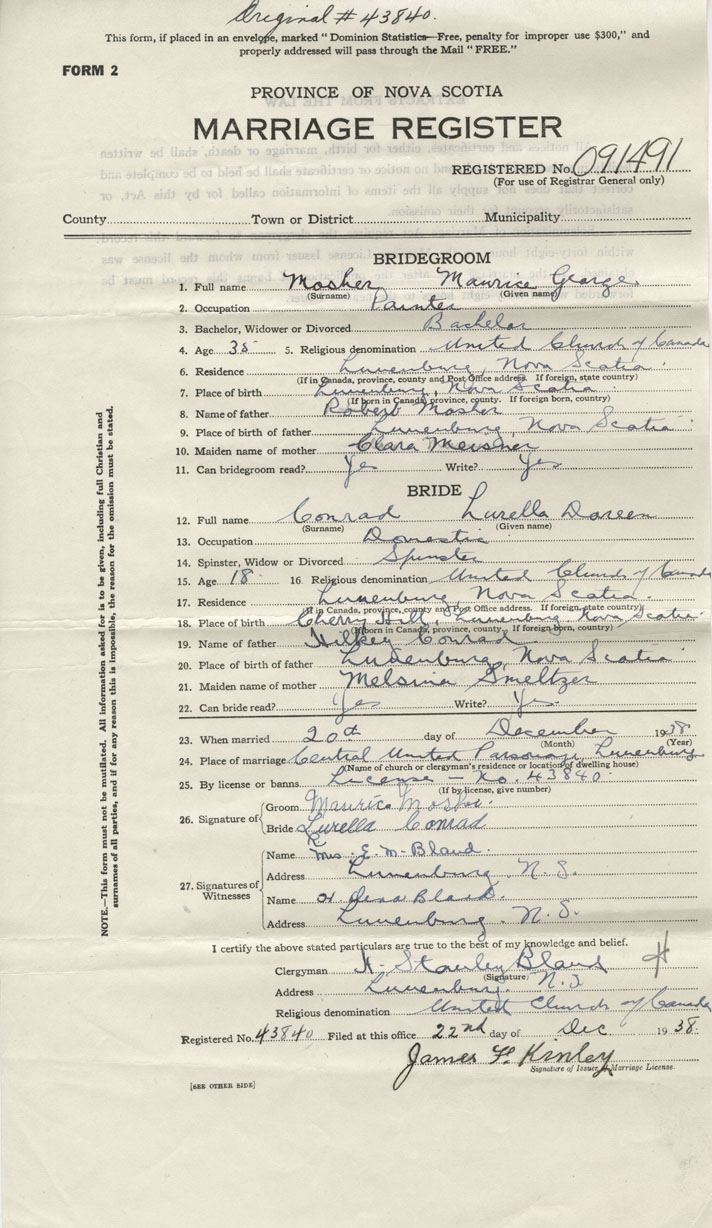 Original # 43840.
This form, if placed in an envelope, marked "Dominion Statistics—Free, penalty for improper use $300," and
properly addressed will pass through the Mail "FREE."
FORM 2
PROVINCE OF NOVA SCOTIA
MARRIAGE REGISTER
REGISTERED No. 091491
(For use of Registrar General only)
County Town or District Municipality
BRIDEGROOM
1. Full name Mosher Maurice George
(Surname) (Given name)
2. Occupation Painter
3. Bachelor, Widower or Divorced Bachelor
4. Age 35 5. Religious denomination United Church of Canada
6. Residence Lunenburg, Nova Scotia
(If in Canada, province, county and Post Office address. If foreign, state country)
7. Place of birth Lunenburg, Nova Scotia
(If born in Canada, province, county. If foreign born, country)
8. Name of father Robert Mosher
9. Place of birth of father Lunenburg, Nova Scotia
10. Maiden name of mother Clara Meisner
11. Can bridegroom read? Yes Write? Yes
BRIDE
12. Full name Conrad Lurella Doreen
(Surname) (Given name)
13. Occupation Domestic
14. Spinster, Widow or Divorced Spinster
15. Age 18 16. Religious denomination United Church of Canada
17. Residence Lunenburg, Nova Scotia
(If in Canada, province, county and Post Office address. If foreign, state country)
18. Place of birth Cherry Hill, Lunenburg, Nova Scotia
(If born in Canada, province, county. If foreign born, country)
19. Name of father Conrad
20. Place of birth of father Lunenburg, Nova Scotia
21. Maiden name of mother Smeltzer
22. Can bride read? Yes Write? Yes
23. When married 20th day of December 1938
(Month) (Year)
24. Place of marriage Central United Parsonage, Lunenburg
(Name of church or clergyman's residence or location of dwelling house)
25. By license or banns License - No. 43840
(If by license, give number)
26. Signature of Groom Maurice Mosher
Bride Lurella Conrad
27. Signatures of Witnesses
Name Mrs. E. M. Bland
Address Lunenburg. N.S.
Name Bland
Address Lunenburg. N.S.
I certify the above stated particulars are true to the best of my knowledge and belief.
Clergyman Stanley Bland
(Signature)
Address Lunenburg. N.S.
Religious denomination United Church of Canada
Registered No. 43840 Filed at this office 22nd day of Dec 1938.
James Kinley
Signature of Issuer of Marriage License.
[SEE OTHER SIDE]
NOTE.—This form must not be mutilated. All information asked for is to be given, including full Christian and
surnames of all parties, and if for any reason this is impossible, the reason for the omission must be stated.